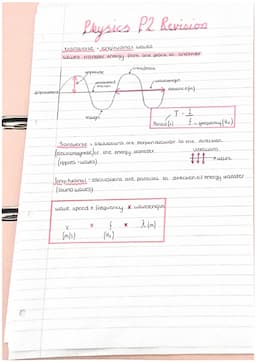 Physics P2 Revision
transverse + longitudinal waves
waves transfer energy from one place to another
amplitude
wavelength
distance (m)
trough
T = 1
f
Period(s)
frequency(Hz)
Transverse - vibrations are perpendicular to the direction
(electromagnetic) of the energy transfer
(ripples-waves)
vibrations
waves
longitudinal - vibrations are parallel to direction of energy transfer
(sound waves)
wave speed = frequency x wavelength
v = f x λ (m)
(m/s) (Hz)